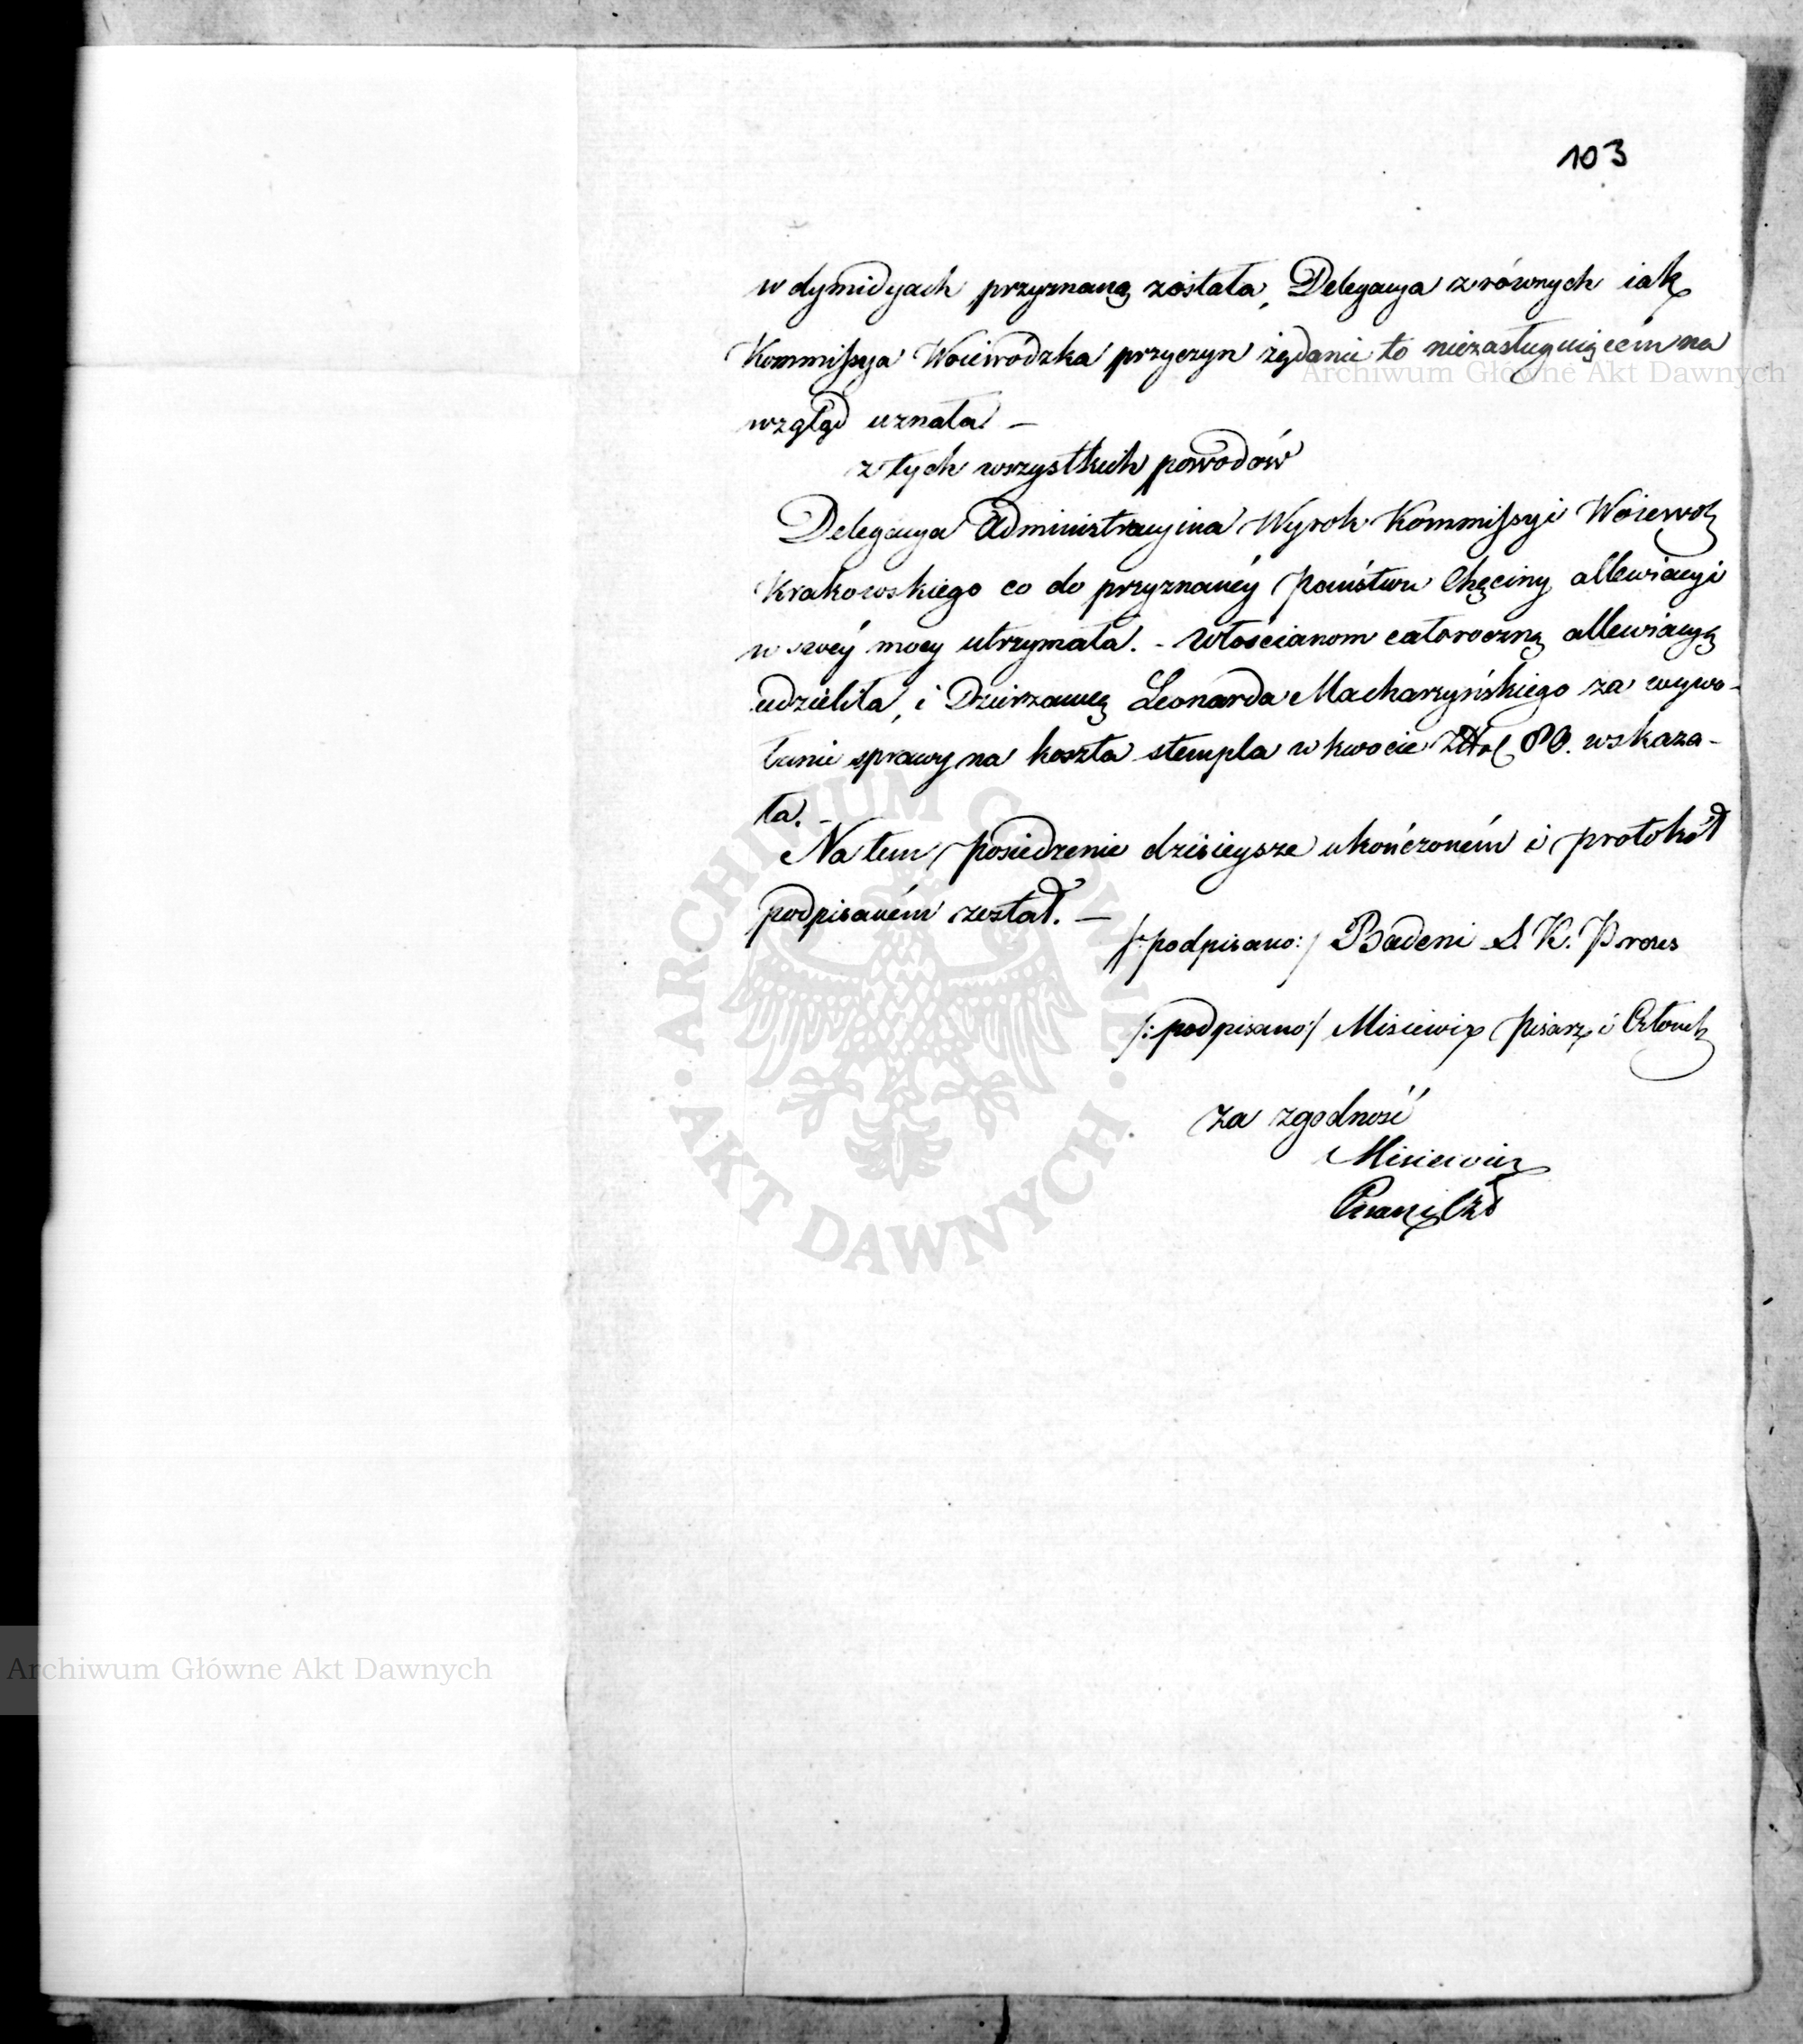 103
w dymidyach przyznaną została, Delegacya z równych iak
Kommissya Woiewodzka przyczyn żądanie to niezasługuiącém na
wzgląd uznała –
z tych wszystkich powodów
Delegacya Administracyina Wyrok Kommissyi Woiewodz
Krakowskiego co do przyznanéy Państwu Chęciny allewiacyi
w swéy mocy utrzymała. – Włościanom całoroczną allewiacyą
udzieliła, i Dzierzawcę Leonarda Macharzyńskiego za wywo-
łanie sprawy na koszta stempla w kwocie Złpol 80. wskaza-
ła. –
Na tem posiedzenie dzisieysze ukończoném i protokół
podpisaném został. –
/:podpisano:/ Badeni S. K. Prezes
/:podpisano:/ Misiewicz Pisarz i Członek
Za zgodność
Misiewicz
Archiwum Główne Akt Dawnych
ARCHIWUM GŁÓWNE AKT DAWNYCH
Archiwum Główne Akt Dawnych